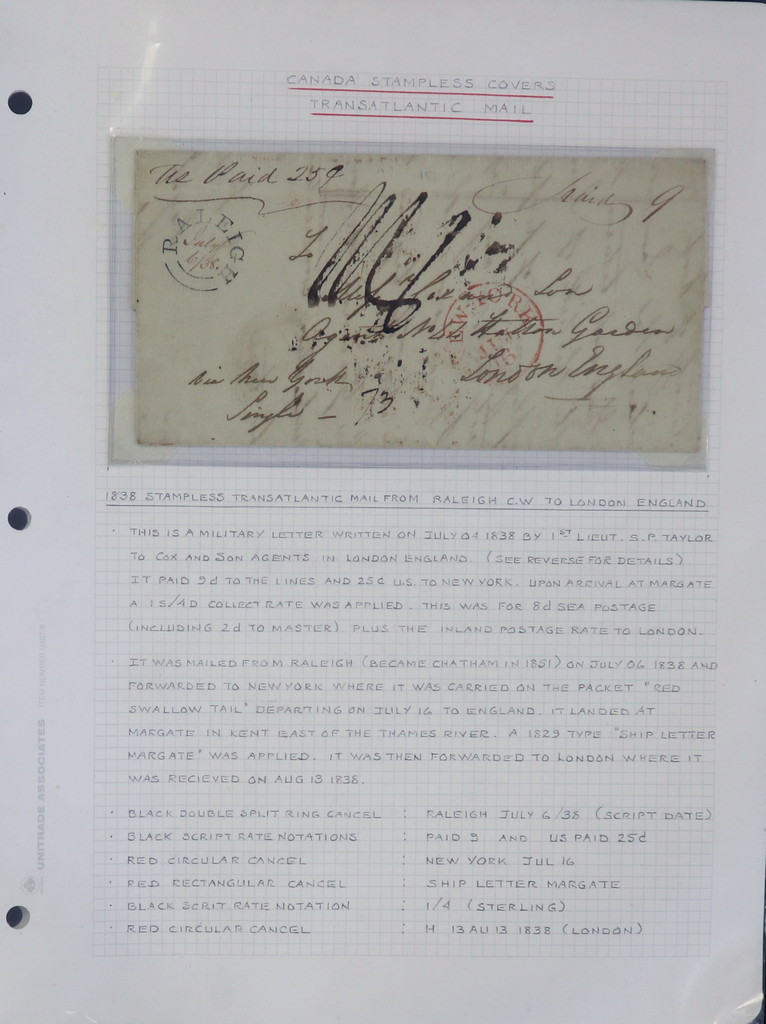 CANADA STAMPLESS COVERS
TRANSATLANTIC MAIL
Paid 25¢
Paid 9
RALEIGH
July
6/38.
To
Son
Agents
Hatton Garden
London England
via New York
Single – 73
1838 STAMPLESS TRANSATLANTIC MAIL FROM RALEIGH C.W TO LONDON ENGLAND
· THIS IS A MILITARY LETTER WRITTEN ON JULY 04 1838 BY 1ST LIEUT. S.P. TAYLOR
TO COX AND SON AGENTS IN LONDON ENGLAND. (SEE REVERSE FOR DETAILS)
IT PAID 9d TO THE LINES AND 25¢ U.S. TO NEW YORK. UPON ARRIVAL AT MARGATE
A 1S/4D COLLECT RATE WAS APPLIED. THIS WAS FOR 8d SEA POSTAGE
(INCLUDING 2d TO MASTER) PLUS THE INLAND POSTAGE RATE TO LONDON.
· IT WAS MAILED FROM RALEIGH (BECAME CHATHAM IN 1851) ON JULY 06 1838 AND
FORWARDED TO NEW YORK WHERE IT WAS CARRIED ON THE PACKET "RED
SWALLOW TAIL" DEPARTING ON JULY 16 TO ENGLAND. IT LANDED AT
MARGATE IN KENT EAST OF THE THAMES RIVER. A 1829 TYPE "SHIP LETTER
MARGATE" WAS APPLIED. IT WAS THEN FORWARDED TO LONDON WHERE IT
WAS RECIEVED ON AUG 13 1838.
· BLACK DOUBLE SPLIT RING CANCEL : RALEIGH JULY 6/38 (SCRIPT DATE)
· BLACK SCRIPT RATE NOTATIONS : PAID 9 AND US PAID 25d
· RED CIRCULAR CANCEL : NEW YORK JUL 16
· RED RECTANGULAR CANCEL : SHIP LETTER MARGATE
· BLACK SCRIT RATE NOTATION : 1/4 (STERLING)
· RED CIRCULAR CANCEL : H 13 AU 13 1838 (LONDON)
UNITRADE ASSOCIATES